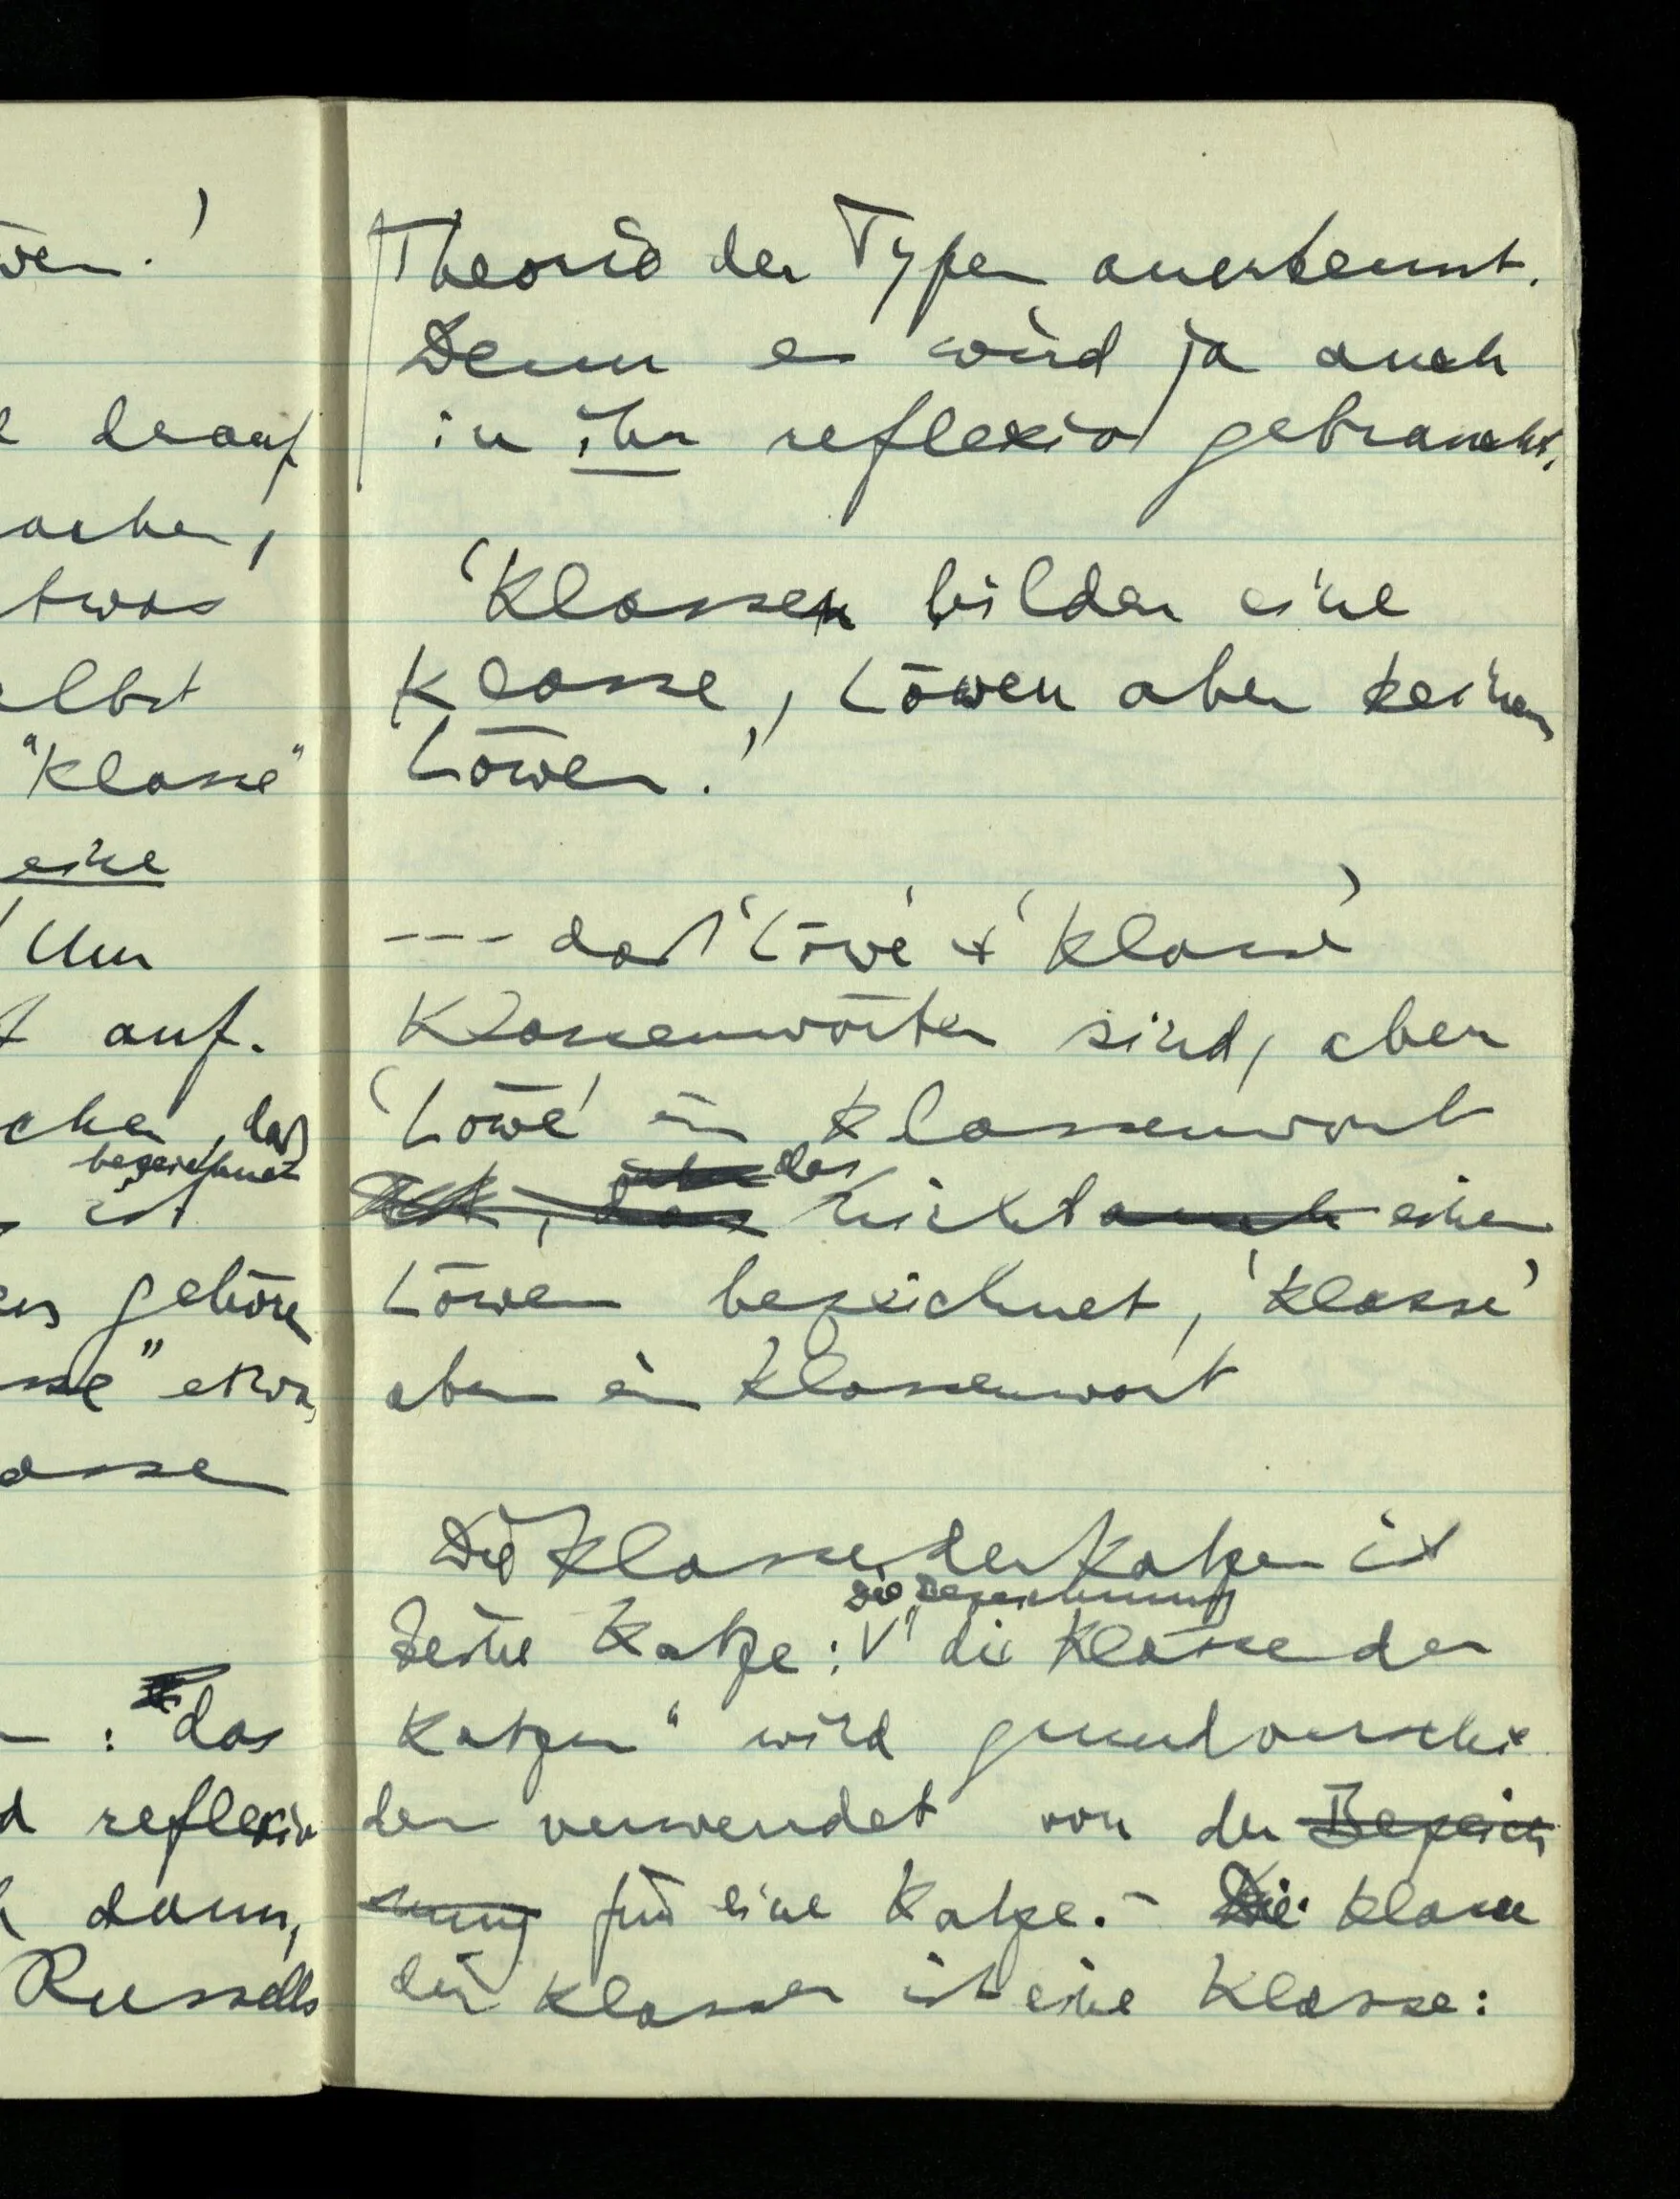 wen.'
drauf
achen,
etwas
elbst
"Klasse"
eine
Um
auf.
chen, daß
bezeichnet
ist
gehöre
sse" etwa,
asse
: das
reflexiv
dann,
Russells
Theorie der Typen anerkennt.
Denn es wird ja auch
in ihr reflexiv gebraucht.
'Klassen bilden eine
Klasse, Löwen aber keinen
Löwen.'
--- daß 'Löwe' & 'Klasse'
Klassenwörter sind, aber
'Löwe' ein Klassenwort
aber das
ist, das nicht auch einen
Löwen bezeichnet, 'Klasse'
aber ein Klassenwort
Die Klasse der Katzen ist
keine Katze: V" die Klasse der
die Bezeichnung
Katzen" wird grundverschie
den verwendet von der Bezeich
nung für eine Katze. – Die Klasse
der Klassen ist eine Klasse: